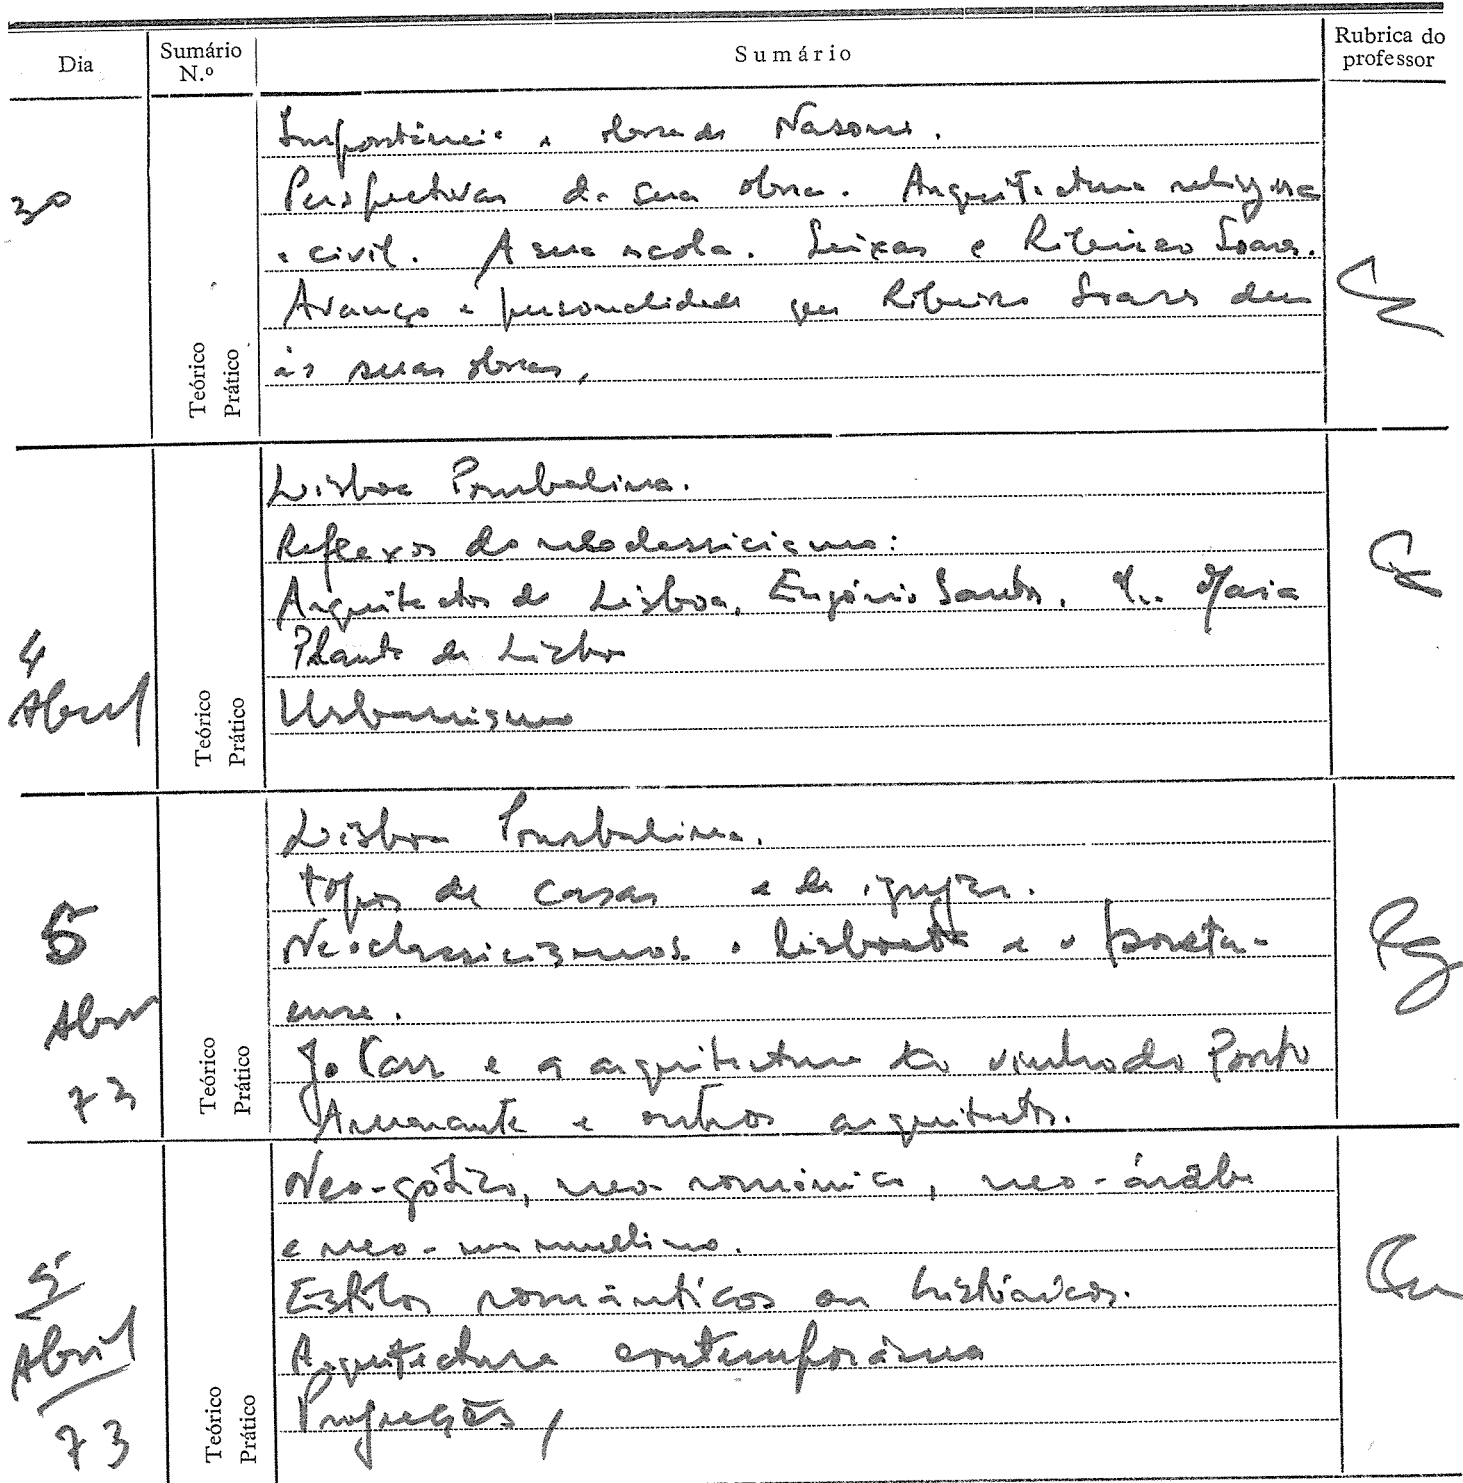 Dia
Sumário N.º
Sumário
Rubrica do professor
30
Teórico
Prático
Importância e obra de Nasoni.
Perspectivas da sua obra. Arquitectura religiosa
e civil. A sua escola. Seixas e Ribeiro Soares.
Avanço e personalidade que Ribeiro Soares deu
às suas obras,
4
Abril
Teórico
Prático
Lisboa Pombalina.
Reflexos do neoclassicismo:
Arquitectos de Lisboa, Eugénio Santos. Maria
Planta de Lisboa
Urbanismo
5
Abril
73
Teórico
Prático
Lisboa Pombalina.
tipos de casas e de igrejas.
Neoclassicismos o lisboeta e o portu-
ense.
J. Carr e a arquitectura do vinho do Porto
Amarante e outros arquitectos.
5
Abril
73
Teórico
Prático
Neo-gótico, neo-românico, neo-árabe
e neo-manuelino.
Estilos românticos ou históricos.
Arquitectura contemporânea
Projecções,